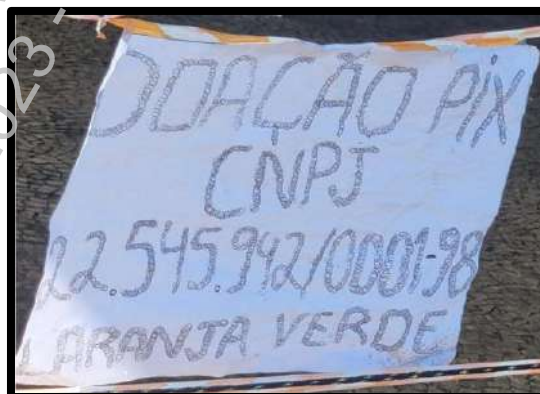 DOAÇÃO PIX
CNPJ
22.545.942/0001-98
LARANJA VERDE